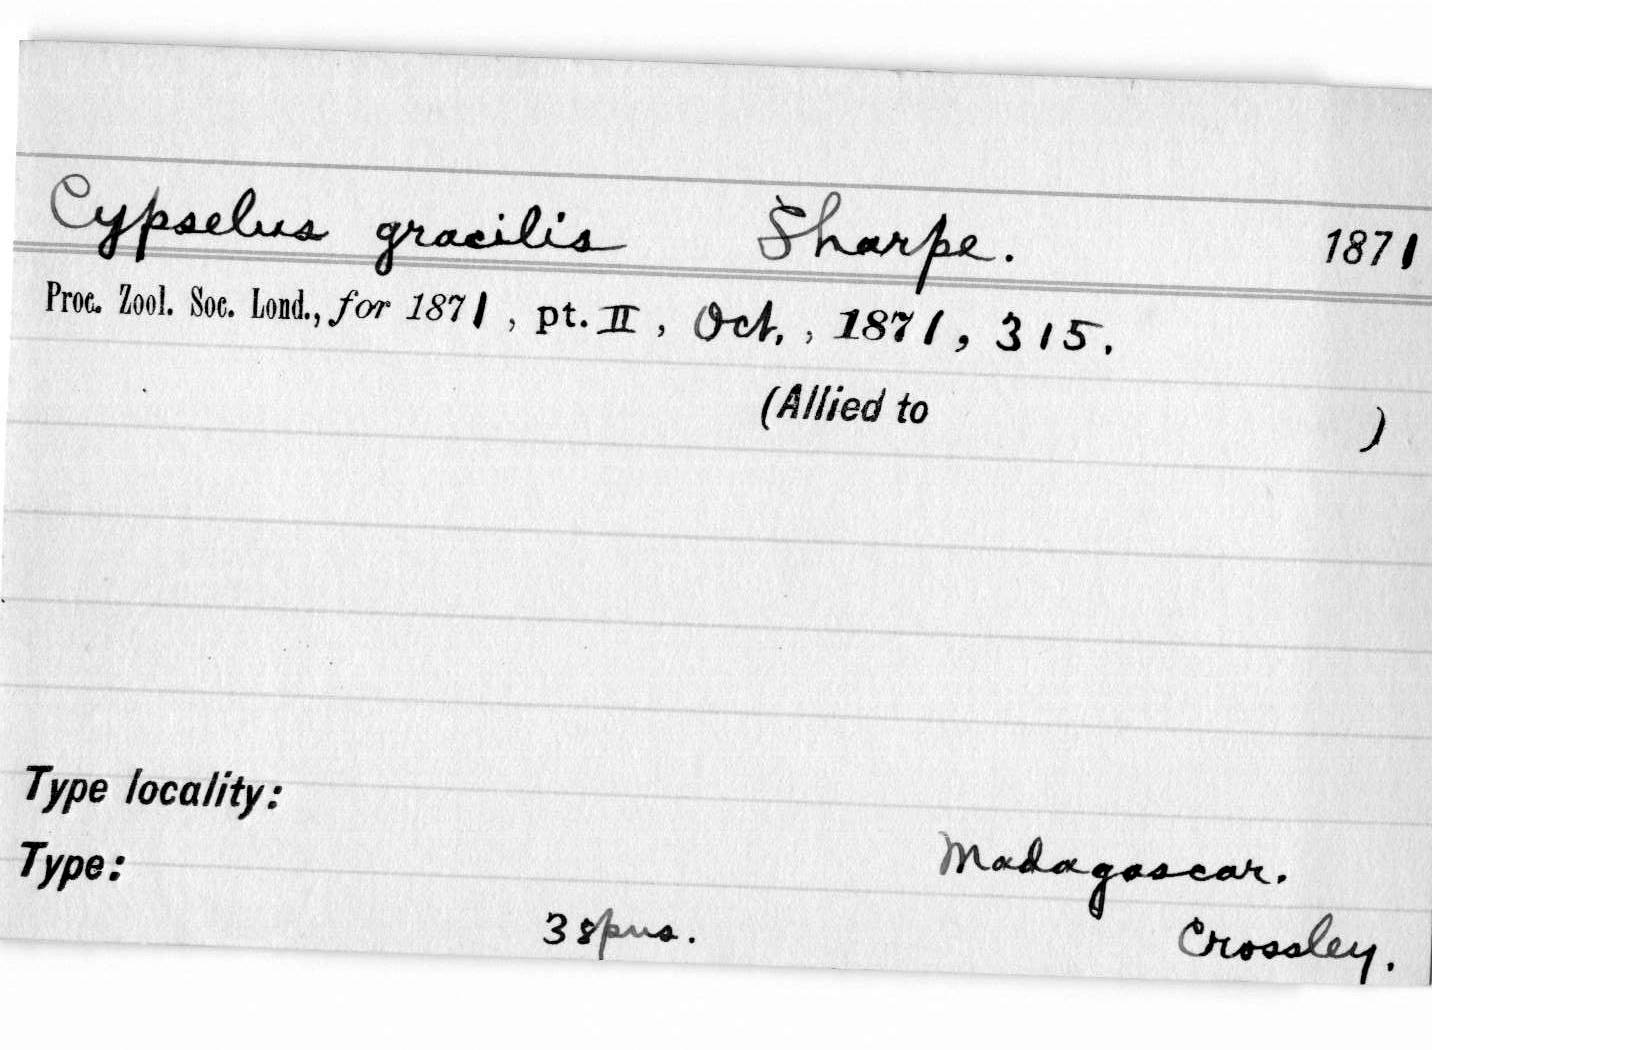 Cypselus gracilis Sharpe. 1871
Proc. Zool. Soc. Lond., for 1871, pt. II, Oct., 1871, 315.
(Allied to )
Type locality:
Madagascar.
Type:
3 spns. Crossley.